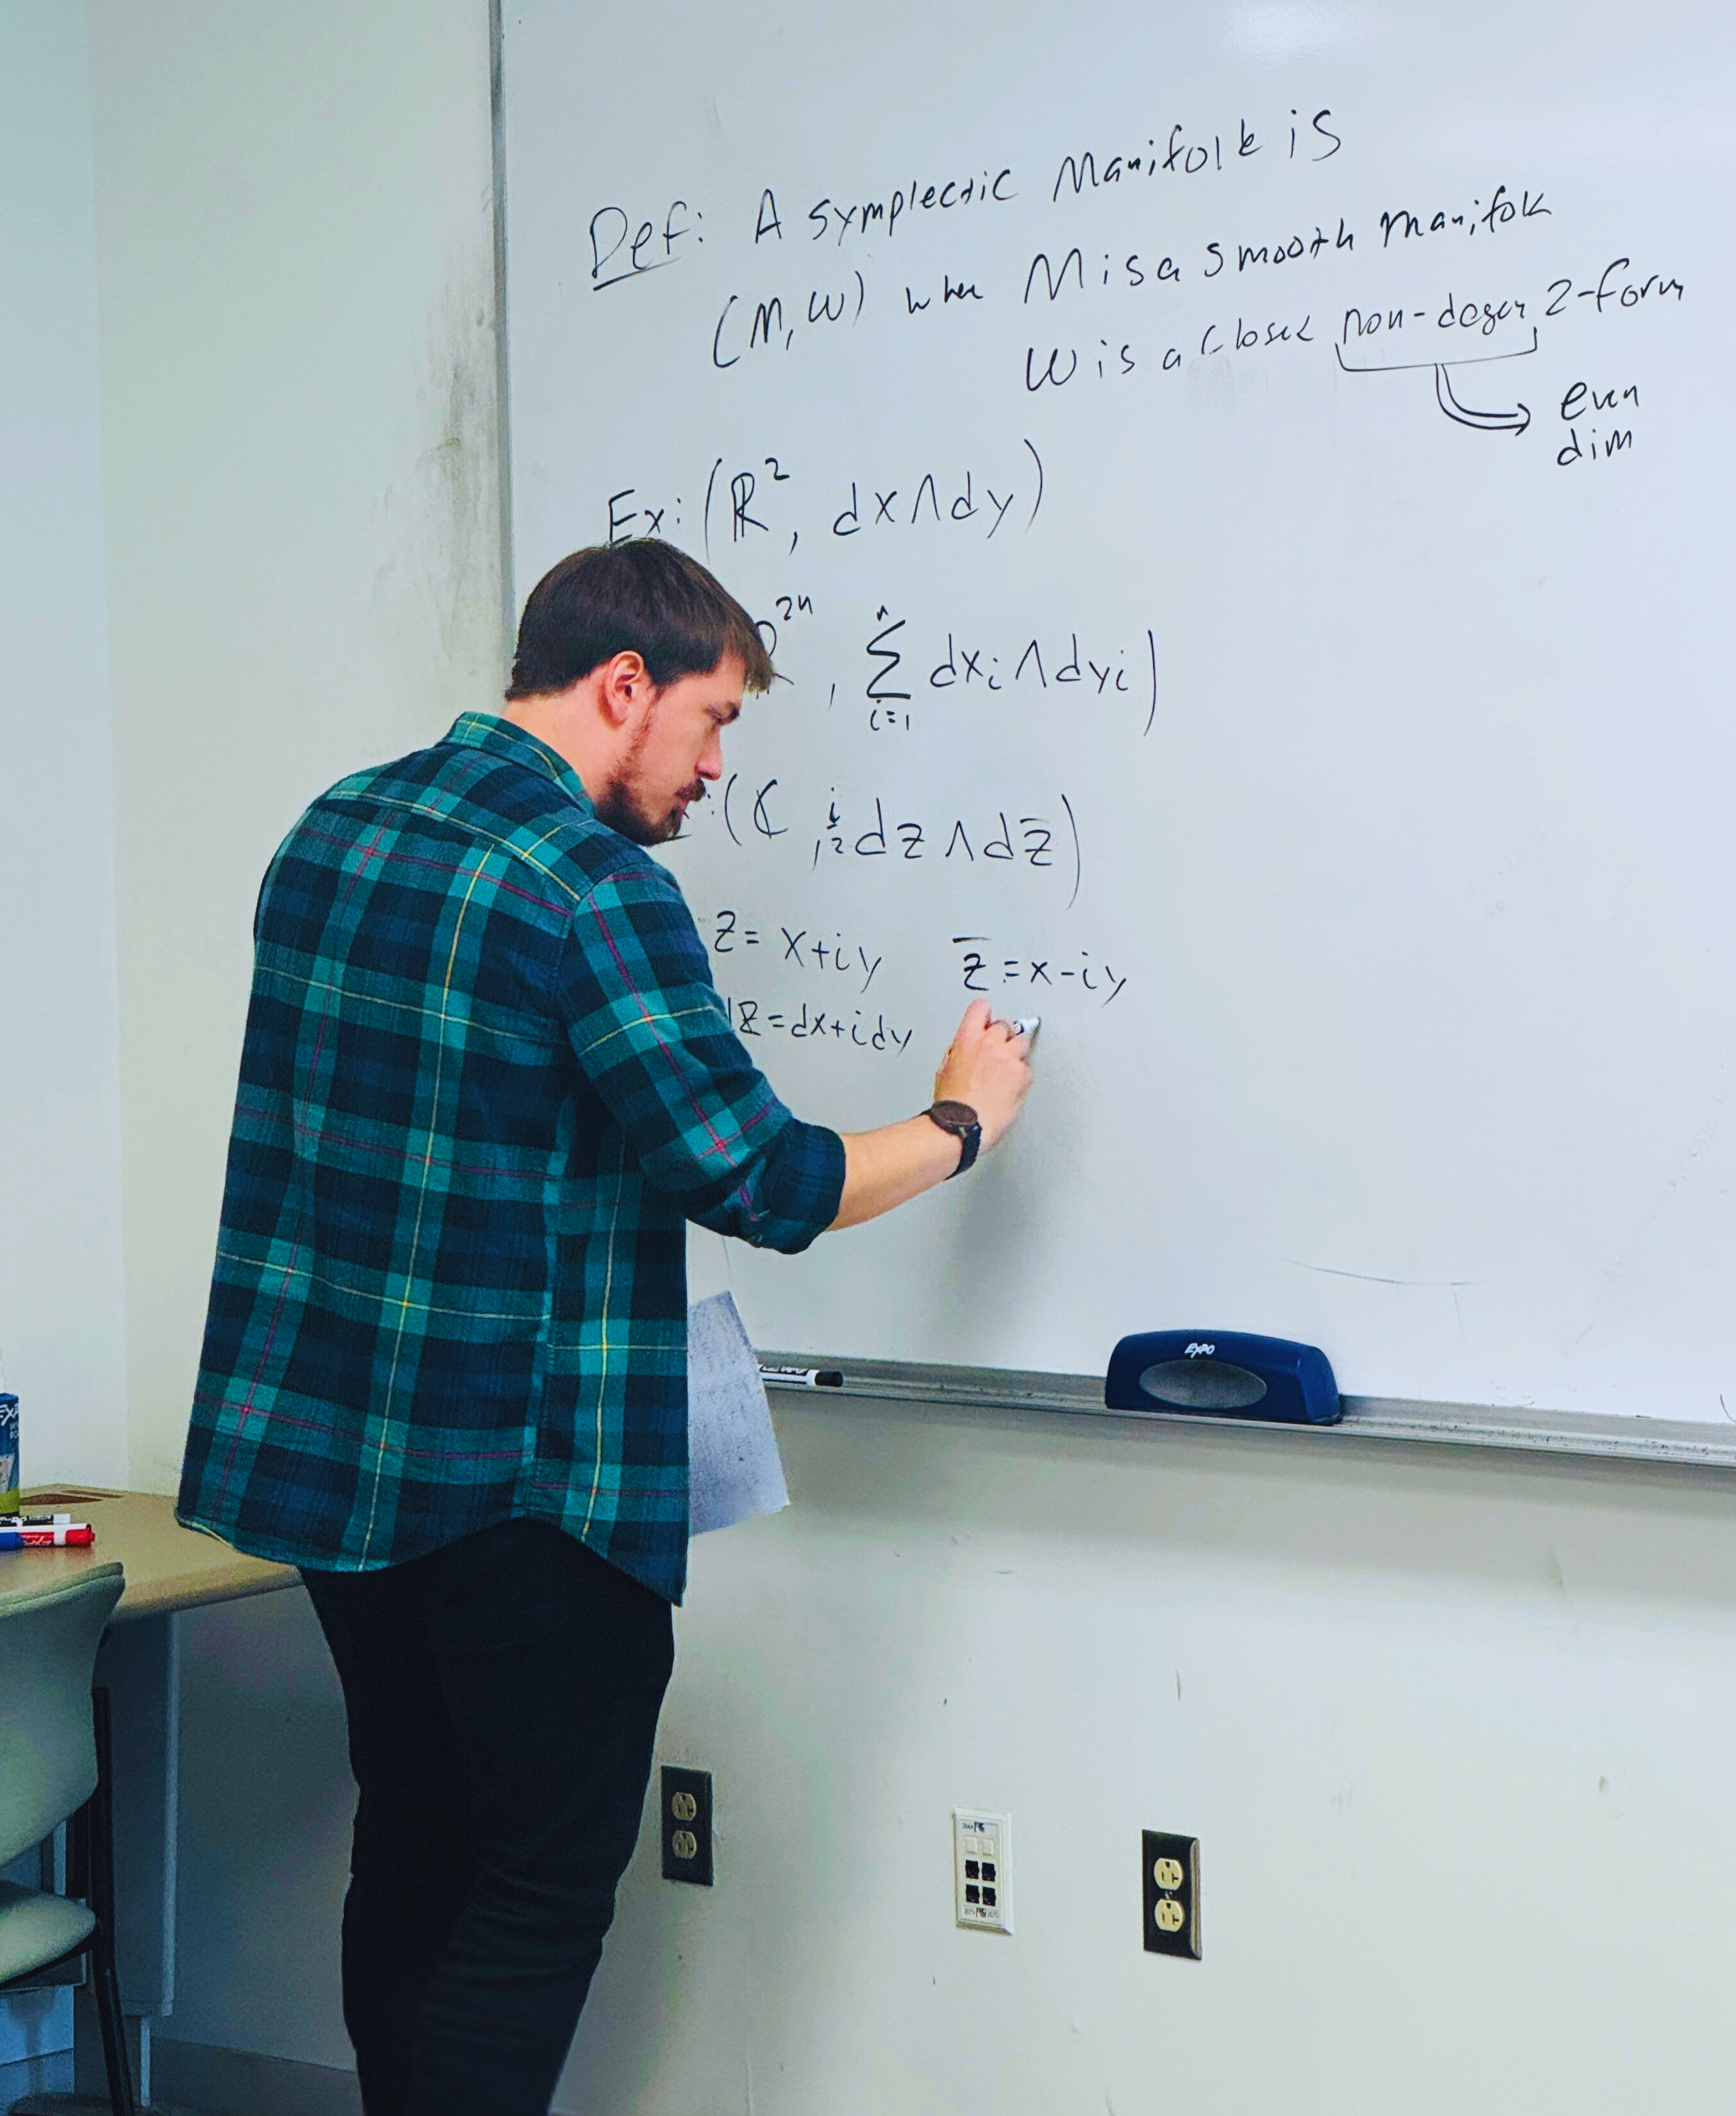 Def: A symplectic Manifold is
(M, ω) where M is a smooth manifold
ω is a closed non-degen 2-form
even
dim
Ex: (ℝ², dx∧dy)
ℝ²ⁿ, n Σ i=1 dxi∧dyi)
:(ℂ, i/2 dz∧dz̄)
z = x+iy z̄ = x-iy
dz=dx+idy
EXPO